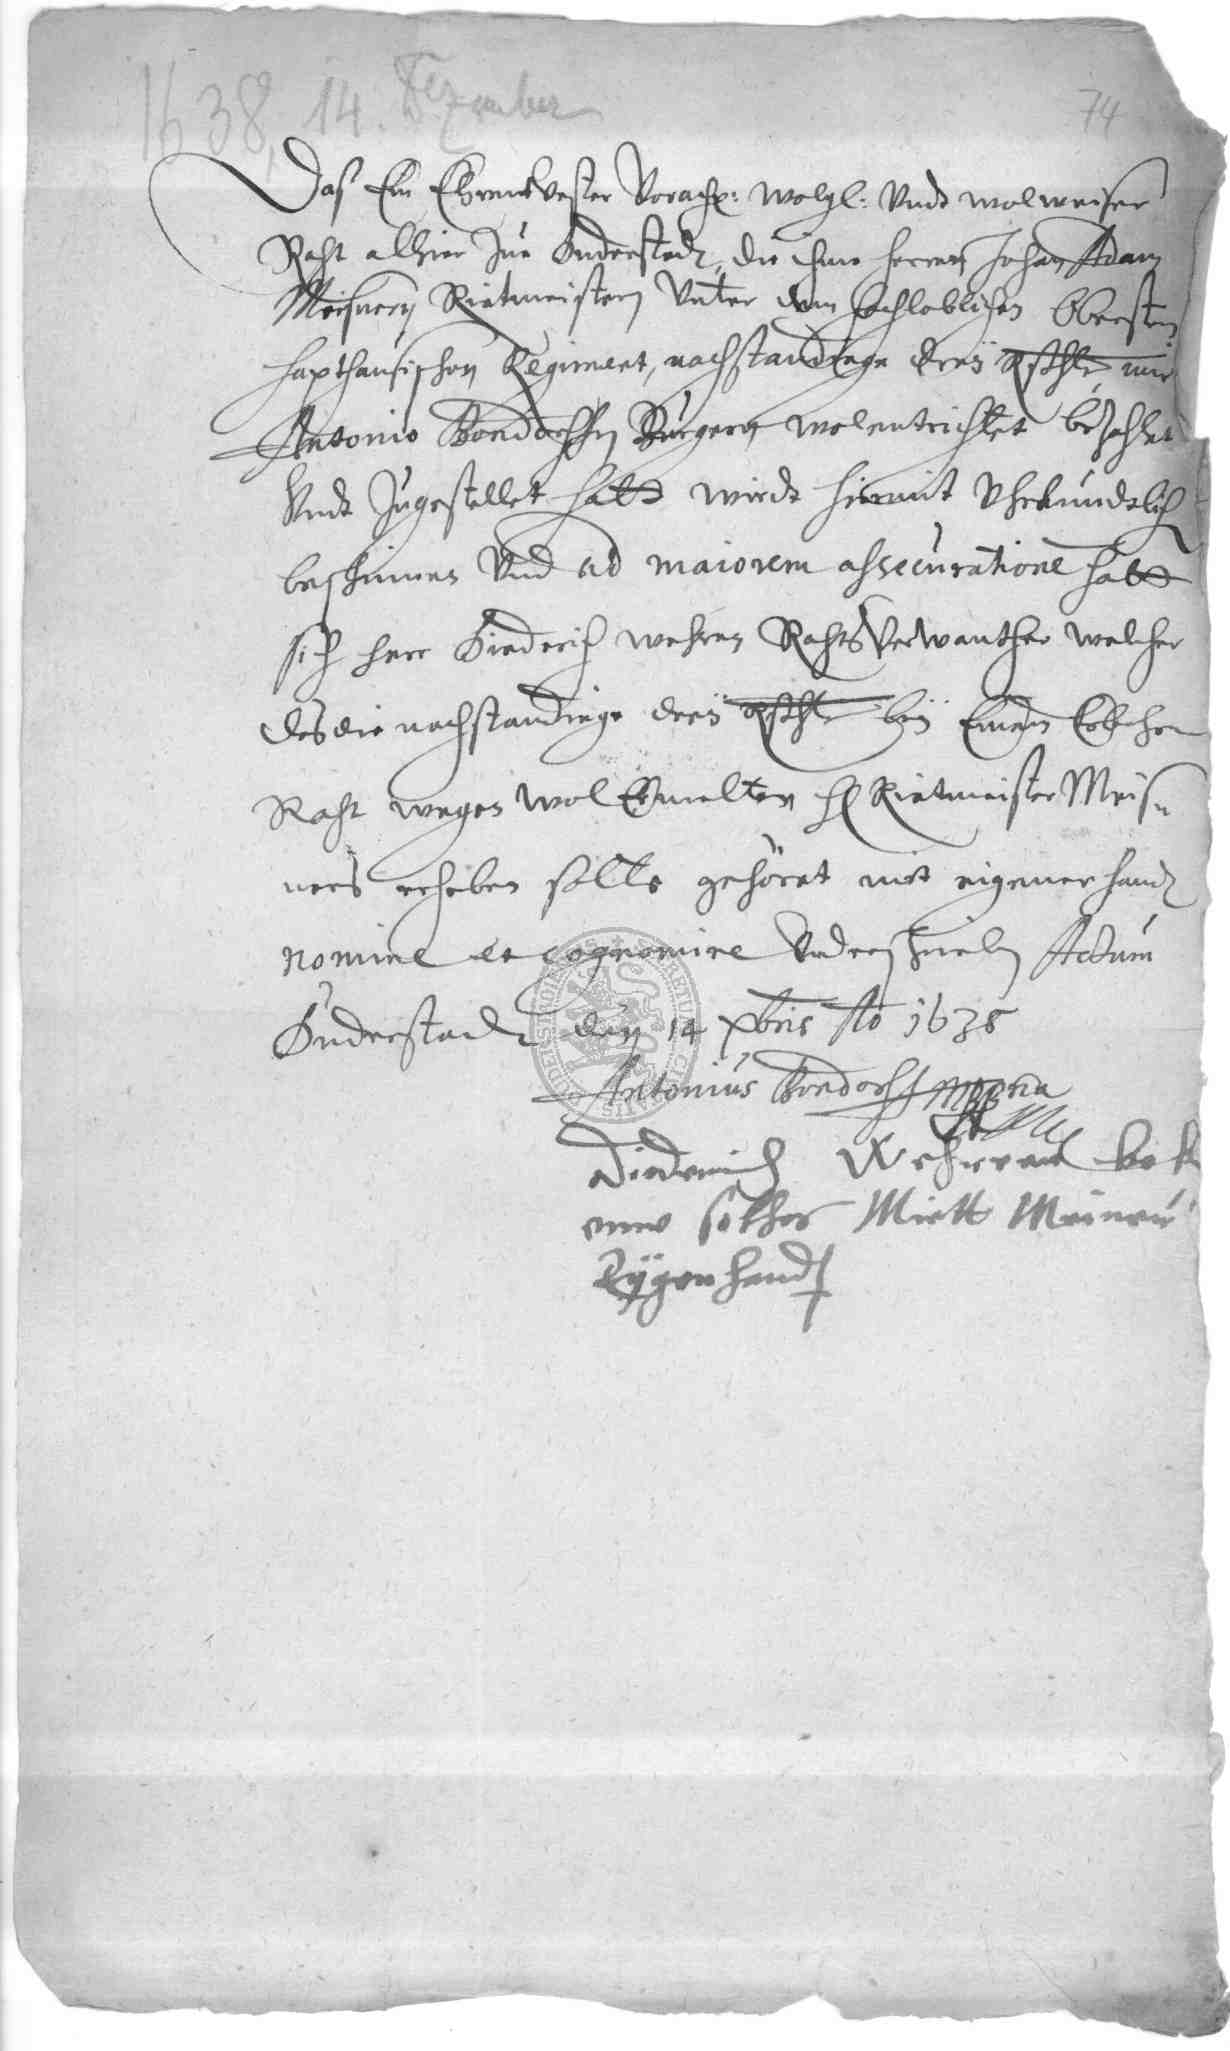 1638, 14. Dezember
74
Das Ein Ehrenvester Vorachp: wolgl: Undt wolweiser
Raht alhier Zue Duderstadt, die ihme herren Johan Adam
Meisnern Rietmeistern Unter dem hochloblichen Obersten
haxthausischen Regiment, nachstandinge dreÿ Rthlr mir
Antonio Bondorffen Burgern wolentrichtet bezahlet
Undt Zugestellet hatt wirdt hiermit Uhrkundtlich
beschienen Und ad maiorem assecuratione hatt
sich herr Diederich wehren RahtsVerwanther welcher
das die nachstandinge dreÿ Rthlr beÿ Einem Erbahren
Raht wegen wol Ermelten H Rietmeister Meis=
ners erheben solle gehöret mit eigener handt
nomine et cognomine Underschrieben Actum
Duderstadt den 14 xbris Ao 1638
Antonius Bondorff mppria
Diederich Wehren bek
enne solches Miett Meiner
Eÿgen handt
DUDERSTADIENSIS